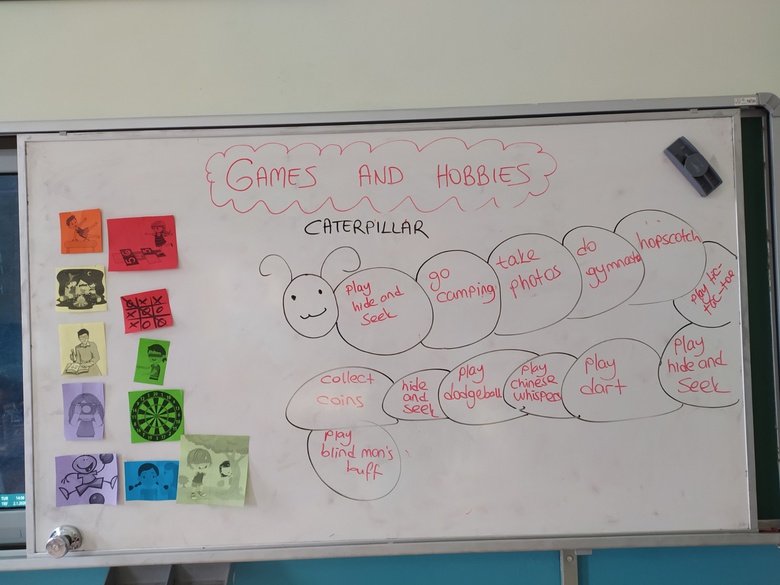 GAMES AND HOBBIES
CATERPILLAR
play
hide and
seek
go
camping
take
photos
do
gymnastic
hopscotch
play tic-
tac-toe
play
hide and
seek
play
dart
play
chinese
whispers
play
dodgeball
hide
and
seek
collect
coins
play
blind man's
buff
X X X
X O
X O O